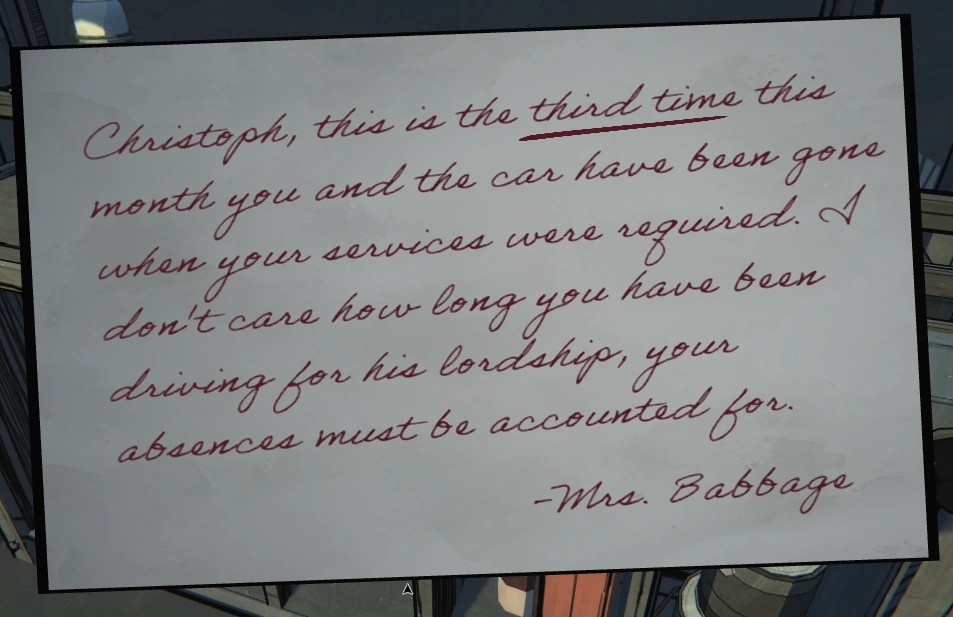 Christoph, this is the third time this
month you and the car have been gone
when your services were required. I
don't care how long you have been
driving for his lordship, your
absences must be accounted for.
-Mrs. Babbage